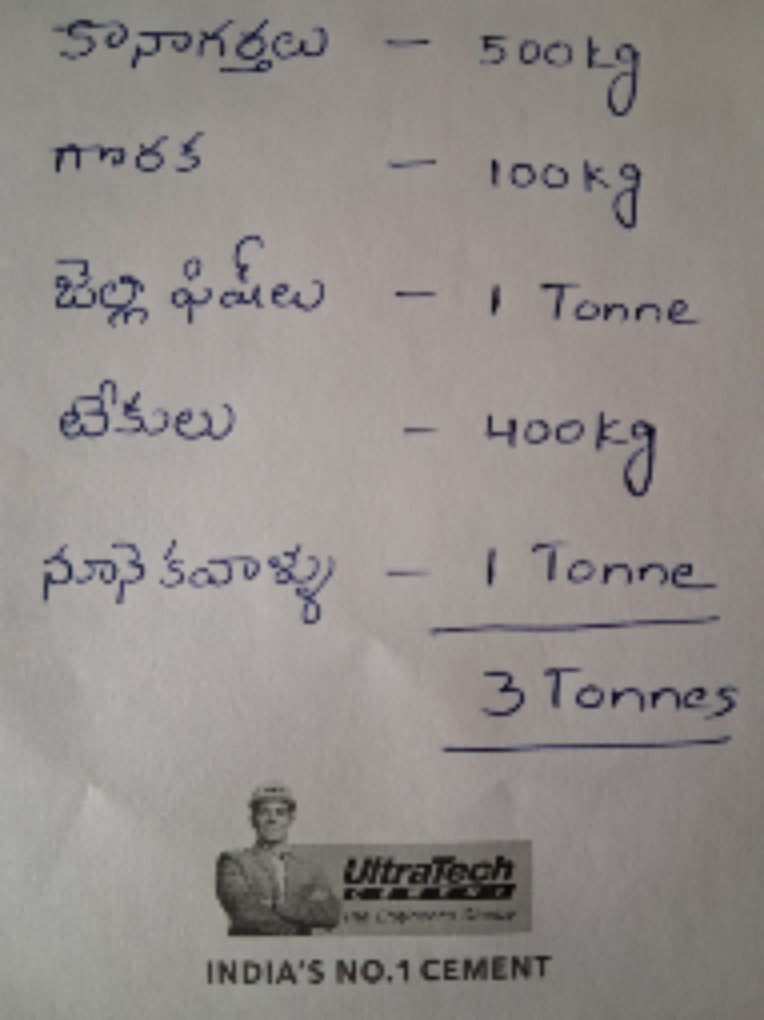 కొనాగర్తలు - 500kg
గొరక - 100kg
జెల్లీ ఫిష్‌లు - 1 Tonne
టేకులు - 400kg
నూనె కవాళ్ళు - 1 Tonne
3 Tonnes
UltraTech
CEMENT
The Engineer's Choice
INDIA'S NO.1 CEMENT